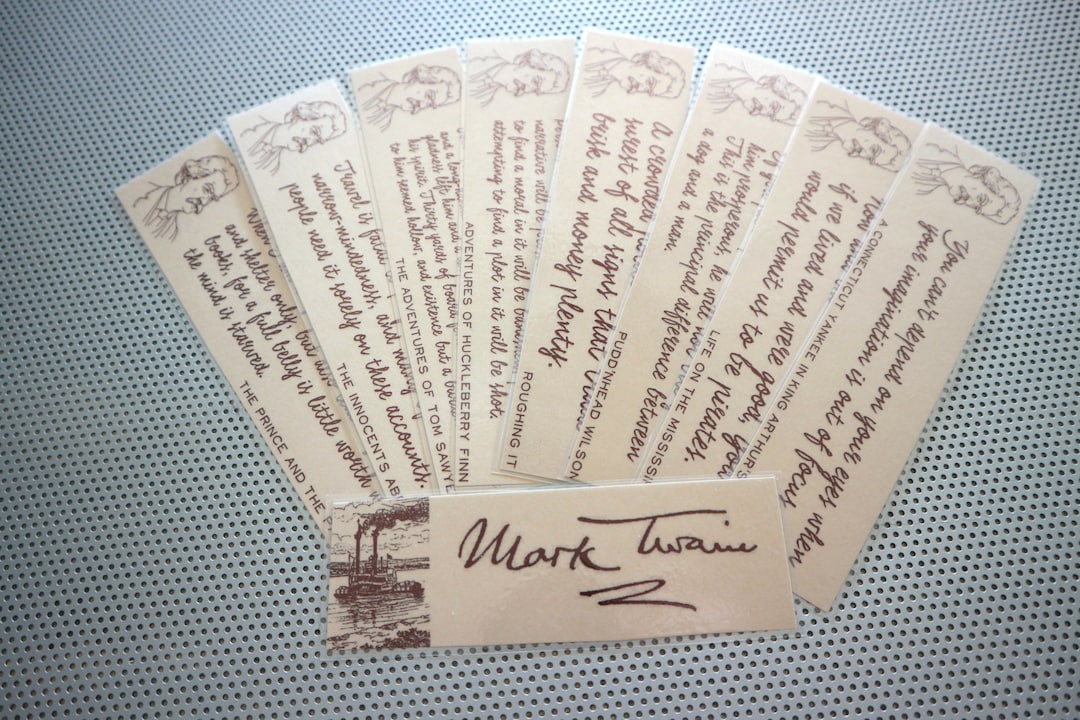 and shelter only, but
books, for a full belly is little worth
the mind is starved.
THE PRINCE AND THE P
Travel is fatal
narrow-mindedness, and many
people need it sorely on these accounts.
THE INNOCENTS AB
and a long
gladness left him and a
his spirit. Thirty yards of board
to him seemed hollow, and existence but a
THE ADVENTURES OF TOM SAWYE
narrative will be
to find a moral in it will be
attempting to find a plot in it will be shot.
ADVENTURES OF HUCKLEBERRY FINN
A crowded
surest of all signs that
brisk and money plenty.
ROUGHING IT
him prosperous, he will not
This is the principal difference between
a dog and a man.
PUDD'NHEAD WILSON
if we lived and were good,
would permit us to be pirates.
LIFE ON THE MISSISSI
You can't depend on your eyes when
your imagination is out of focus
A CONNECTICUT YANKEE IN KING ARTHUR'S
Mark Twain